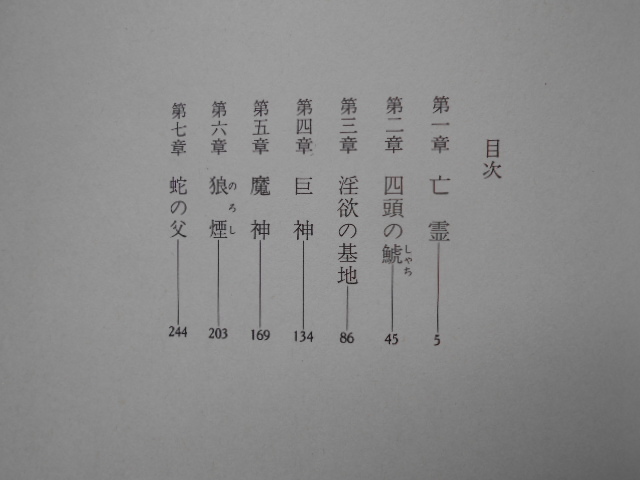 目次
第一章 亡霊 5
第二章 四頭の鯱 しゃち 45
第三章 淫欲の基地 86
第四章 巨神 134
第五章 魔神 169
第六章 狼煙 のろし 203
第七章 蛇の父 244